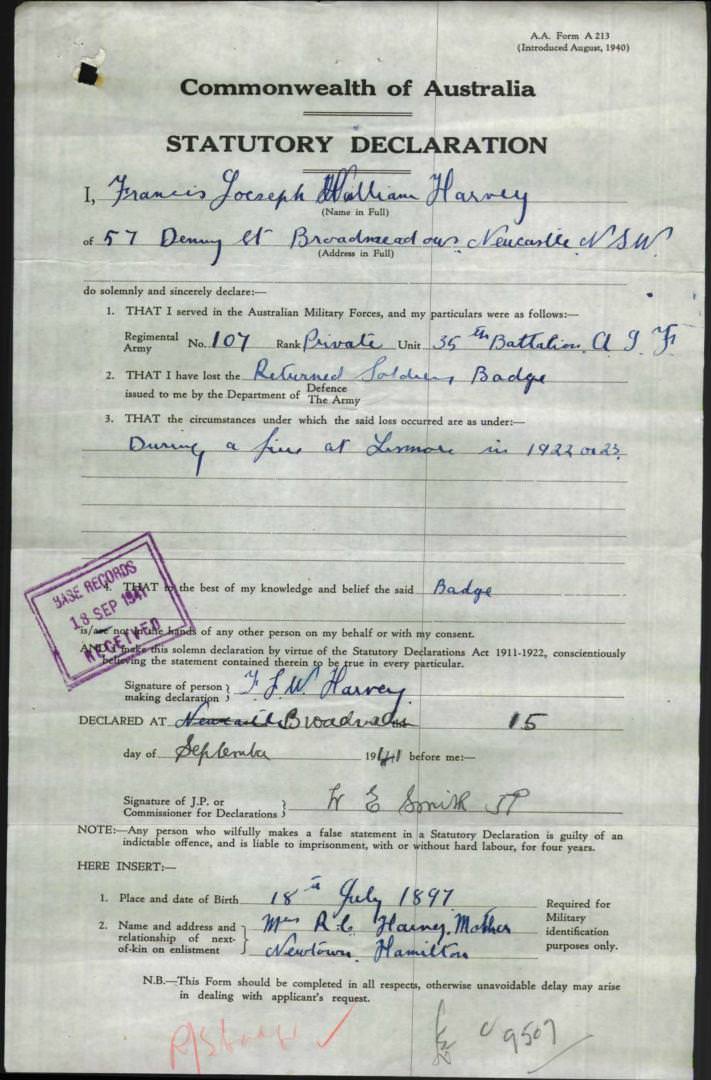 A.A. Form A 213
(Introduced August, 1940)
Commonwealth of Australia
STATUTORY DECLARATION
I, Francis Joeseph William Harvey
(Name in Full)
of 57 Denny St Broadmeadows. Newcastle. N.S.W.
(Address in Full)
do solemnly and sincerely declare:—
1. THAT I served in the Australian Military Forces, and my particulars were as follows:—
Regimental
Army No. 107 Rank Private Unit 35th Battalion. A I F
2. THAT I have lost the Returned Soldiers Badge
issued to me by the Department of Defence
The Army
3. THAT the circumstances under which the said loss occurred are as under:—
During a fire at Lismore in 1922 or 23.
4. THAT to the best of my knowledge and belief the said Badge
is/are not in the hands of any other person on my behalf or with my consent.
AND I make this solemn declaration by virtue of the Statutory Declarations Act 1911-1922, conscientiously
believing the statement contained therein to be true in every particular.
BASE RECORDS
18 SEP 1941
RECEIVED
Signature of person
making declaration } F J W Harvey.
DECLARED AT Newcastle Broadmeadow 15
day of September 1941 before me:—
Signature of J.P. or
Commissioner for Declarations } W E Smith JP
NOTE:—Any person who wilfully makes a false statement in a Statutory Declaration is guilty of an
indictable offence, and is liable to imprisonment, with or without hard labour, for four years.
HERE INSERT:—
1. Place and date of Birth 18th July 1897
2. Name and address and
relationship of next-
of-kin on enlistment } Mrs R. C. Harvey. Mother
Newtown. Hamilton
Required for
Military
identification
purposes only.
N.B.—This Form should be completed in all respects, otherwise unavoidable delay may arise
in dealing with applicant's request.
9507